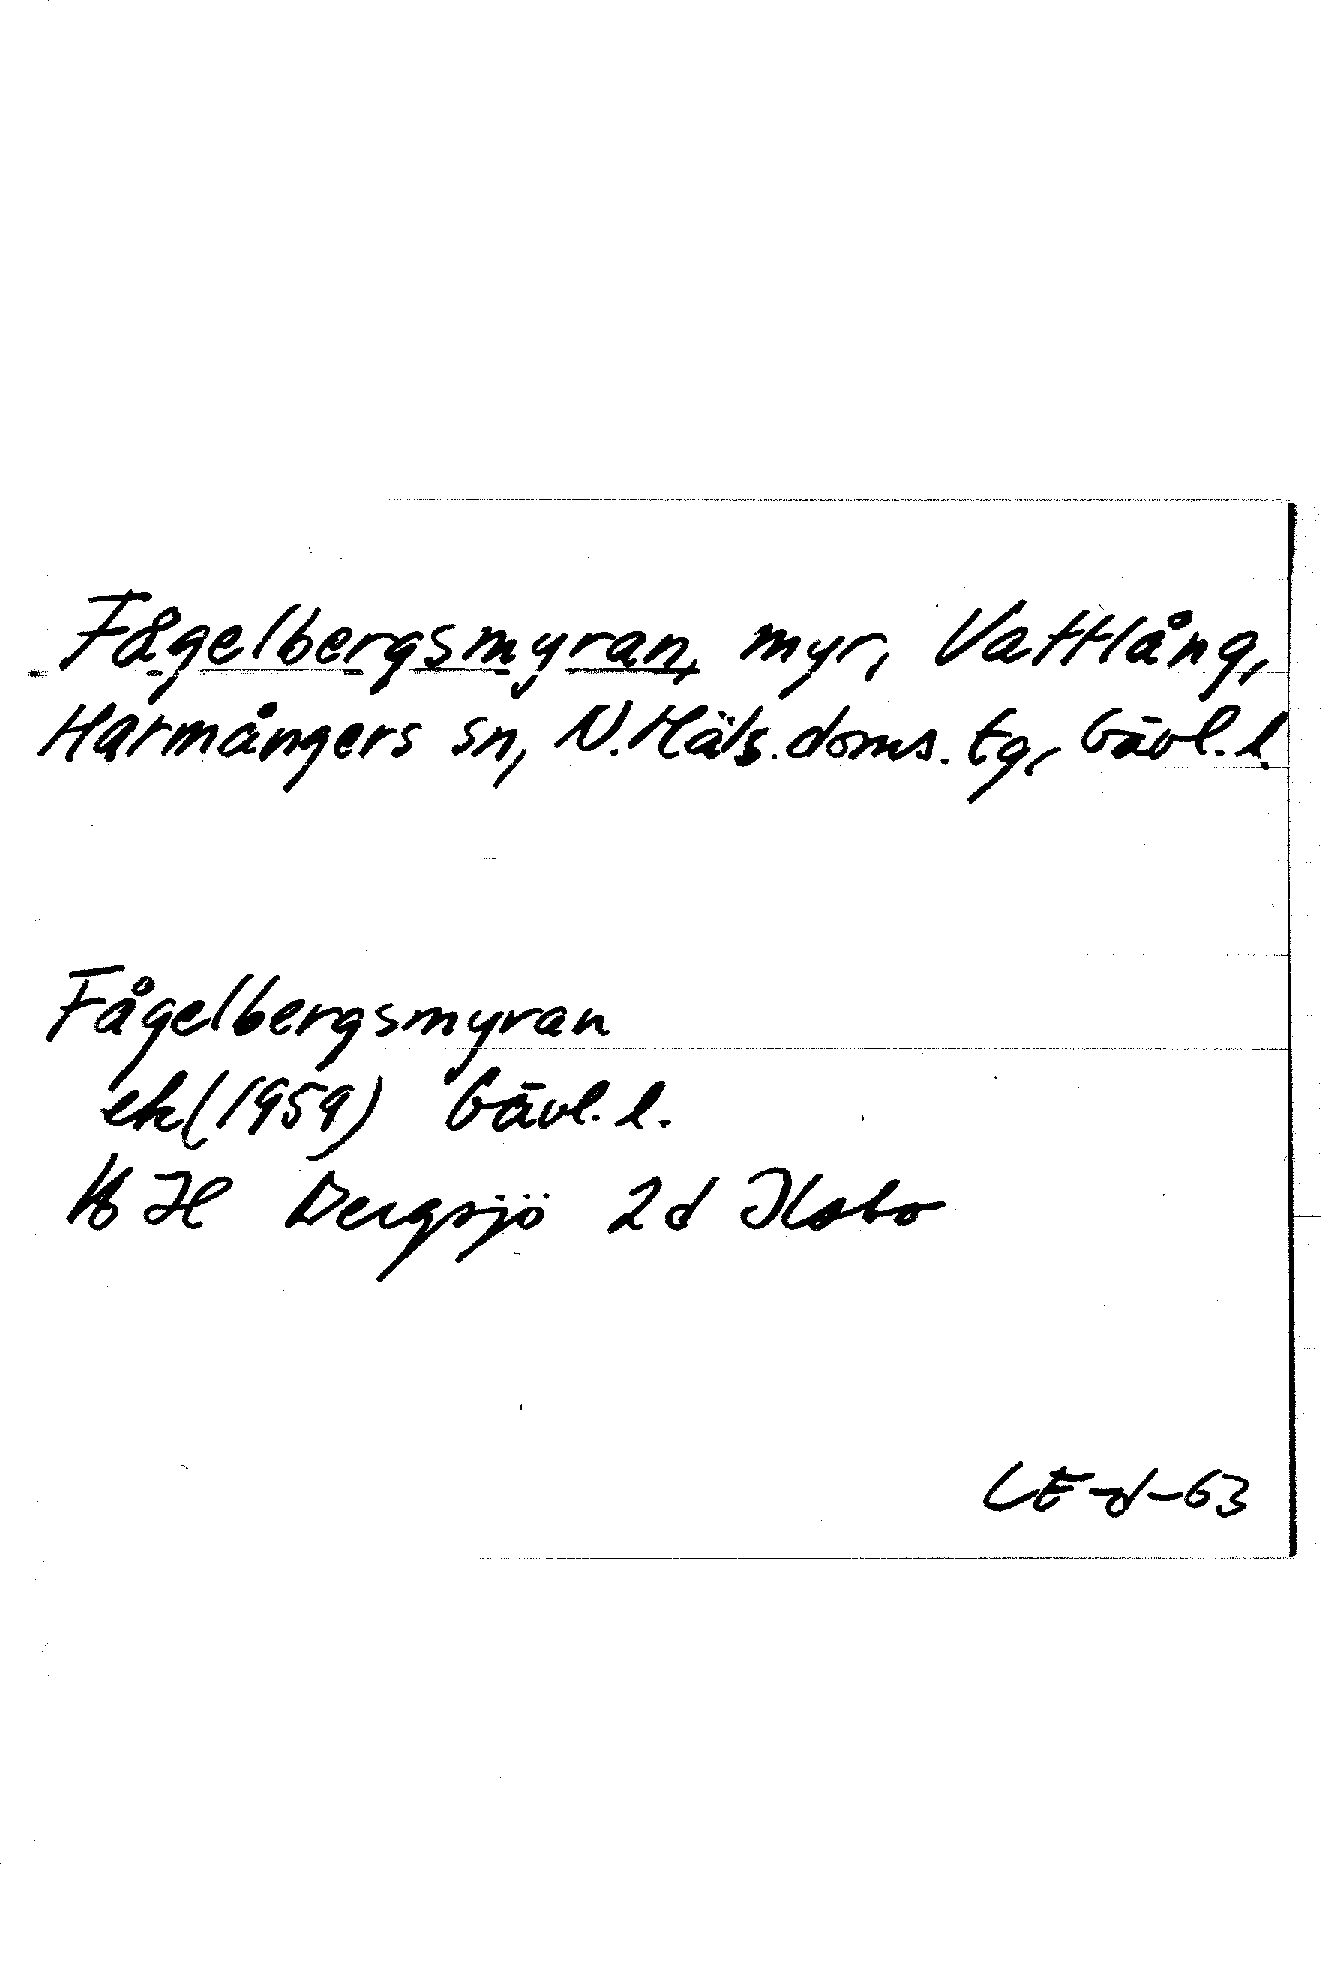 Fågelbergsmyran, myr, Vattlång,
Harmångers sn, N. Häls. doms. tg, Gävl. l.
Fågelbergsmyran
ek (1959) Gävl. l.
16 H Bergsjö 2d Ilsbo
LE-d-63